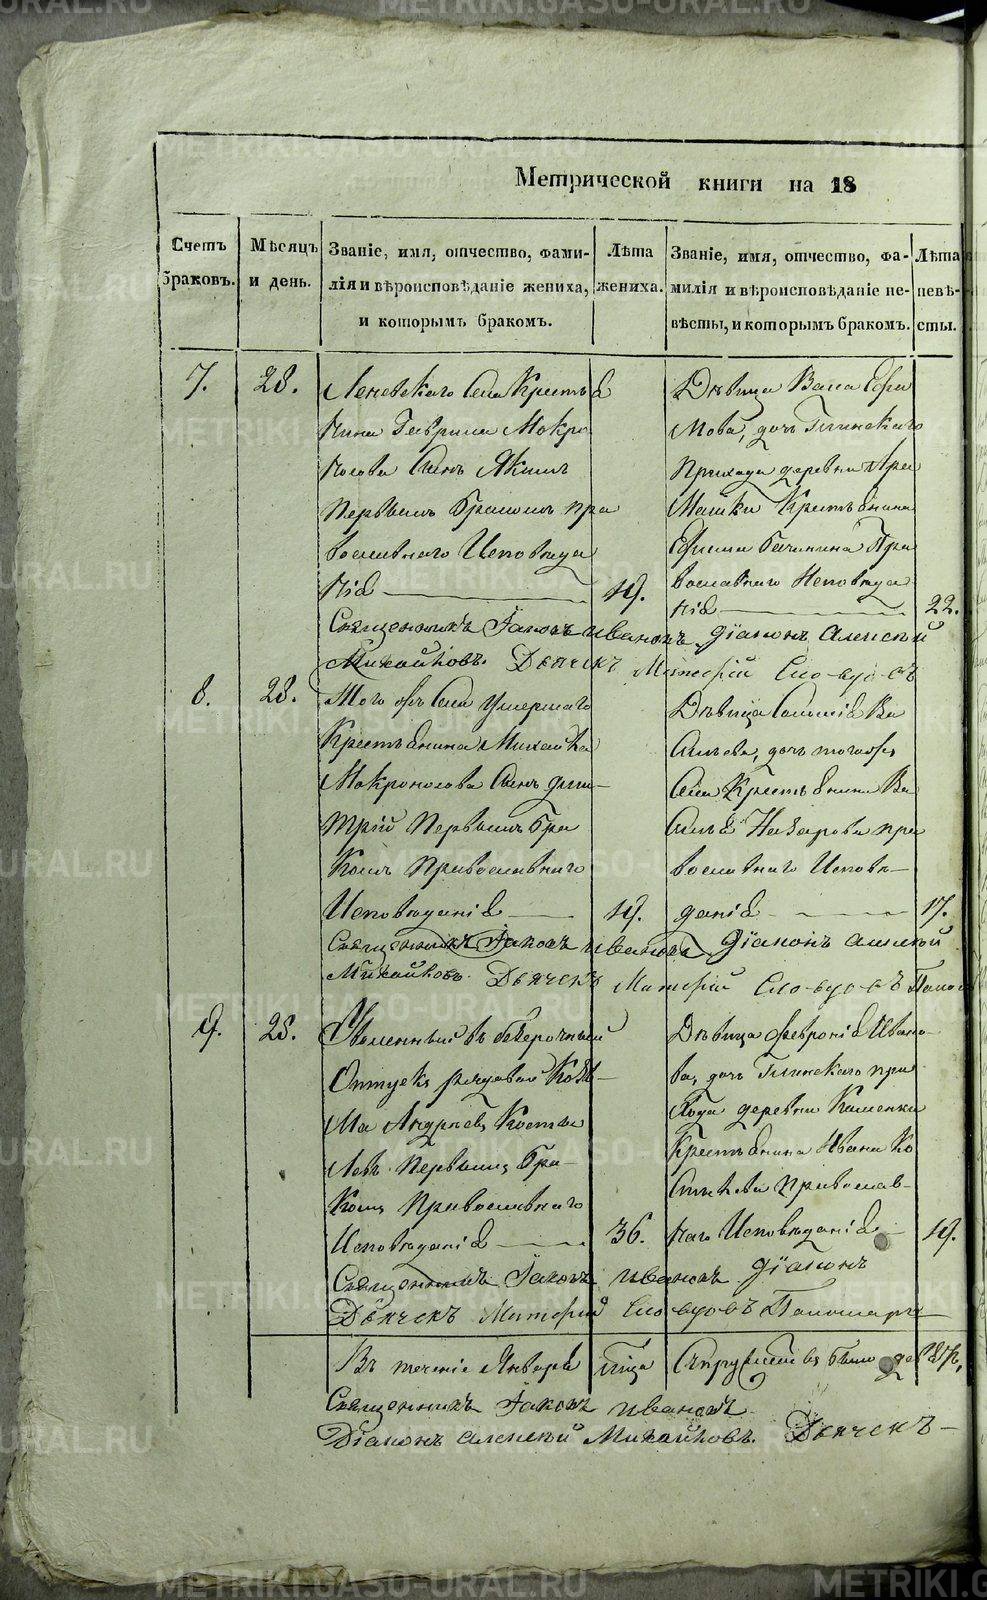 Метрической книги на 18
Счетъ браковъ.
Мѣсяцъ и день.
Званіе, имя, отчество, фами-
лія и вѣроисповѣданіе жениха,
и которымъ бракомъ.
Лѣта жениха.
Званіе, имя, отчество, фа-
милія и вѣроисповѣданіе не-
вѣсты, и которымъ бракомъ.
Лѣта невѣ-
сты.
7. 28.
Леневскаго Села Крестья
нина Гаврила Мокро
носова Сынъ Якимъ
Первымъ Бракомъ пра
вославнаго Исповѣда
нія 19.
Дѣвица Васса Ефи
мова, дочь Глинскаго
Прихода деревни Ара
машки Крестьянина
Ефима Пра
вославнаго Исповѣда
нія 22.
Священникъ Іаковъ Ивановъ Діаконъ Алексѣй
Михайловъ. Дьячекъ
8. 28.
Того жъ Села Умершаго
Крестьянина Михайла
Мокроносова Сынъ Дми-
трій Первымъ Бра
комъ Православнаго
Исповѣданія 19.
Дѣвица Соломія Ва
сильева, дочь тогожъ
Села Крестьянина Ва
силья Назарова пра
вославнаго Исповѣ-
данія 17.
Священникъ Іаковъ Ивановъ Діаконъ Алексѣй
Михайловъ. Дьячекъ
9. 28.
Уволенный въ безсрочный
Отпускъ рядовой Козь-
ма Андреевъ Косты
левъ Первымъ Бра-
комъ Православнаго
Исповѣданія 36.
Дѣвица Февронія Ивано-
ва, дочь Глинскаго при
хода деревни Каменки
Крестьянина Ивана
Православ-
наго Исповѣданія 19.
Священникъ Іаковъ Ивановъ Діаконъ
Дьячекъ
Въ теченіе Января Супружествъ было
Священникъ Іаковъ Ивановъ
Діаконъ Алексѣй Михайловъ. Дьячекъ
METRIKI.GASO-URAL.RU